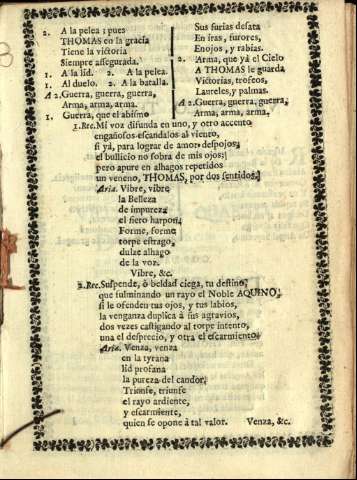 2. A la pelea; pues
THOMAS en la gracia
Tiene la victoria
Siempre assegurada.
1. A la lid. 2. A la pelea.
1. Al duelo. 2. A la batalla.
A 2. Guerra, guerra, guerra,
Arma, arma, arma.
1. Guerra, que el abismo
Sus furias desata
En iras, furores,
Enojos, y rabias.
2. Arma, que yá el Cielo
A THOMAS le guarda
Victorias, trofeos,
Laureles, y palmas.
A 2. Guerra, guerra, guerra,
Arma, arma, arma.
1. Rec. Mi voz difunda en uno, y otro accento
engañosos escandalos al viento,
si yá, para lograr de amor despojos,
el bullicio no sobra de mis ojos;
pero apure en alhagos repetidos
un veneno, THOMAS, por dos sentidos.
Aria. Vibre, vibre
la Belleza
de impureza
el fiero harpon.
Forme, forme
torpe estrago,
dulze alhago
de la voz.
Vibre, &c.
2. Rec. Suspende, ò beldad ciega, tu destino,
que fulminando un rayo el Noble AQUINO,
si le ofenden tus ojos, y tus labios,
la venganza duplica à sus agravios,
dos vezes castigando al torpe intento,
una el desprecio, y otra el escarmiento.
Aria. Venza, venza
en la tyrana
lid profana
la pureza del candor.
Triunfe, triunfe
el rayo ardiente,
y escarmiente,
quien se opone à tal valor. Venza, &c.